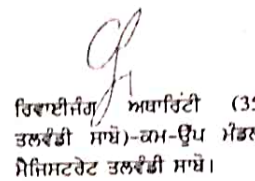 ਰਿਵਾਈਜੰਗ ਅਥਾਰਿਟੀ (35
ਤਲਵੰਡੀ ਸਾਬੋ)-ਕਮ-ਉਪ ਮੰਡਲ
ਮੈਜਿਸਟਰੇਟ ਤਲਵੰਡੀ ਸਾਬੋ।